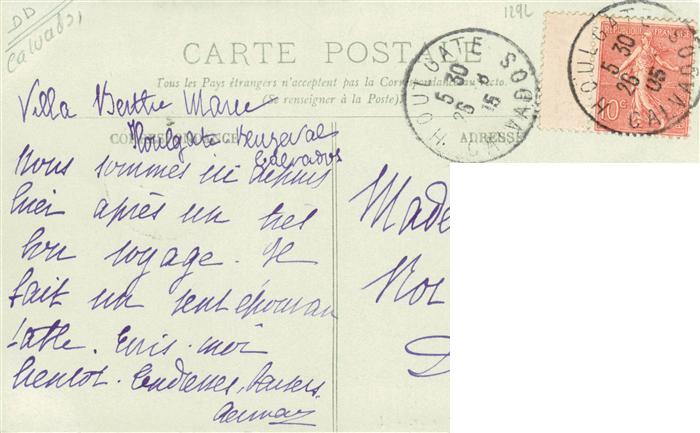 DD
Calvados
1292
CARTE POSTALE
Tous les Pays étrangers n'acceptent pas la Correspondance au recto.
(Se renseigner à la Poste).
CORRESPONDANCE
ADRESSE
HOULGATE CALVADOS
5 30
26 8
05
HOULGATE CALVADOS
5 30
26
05
REPUBLIQUE FRANÇAISE
10c
Villa Berthe Marie
Houlgate Beuzeval
Calvados
Nous sommes ici depuis
hier après un très
bon voyage. Il
fait un vent épouvan
table. Ecris-moi
bientôt. Tendresses, baisers.
Germaine
Made
Not